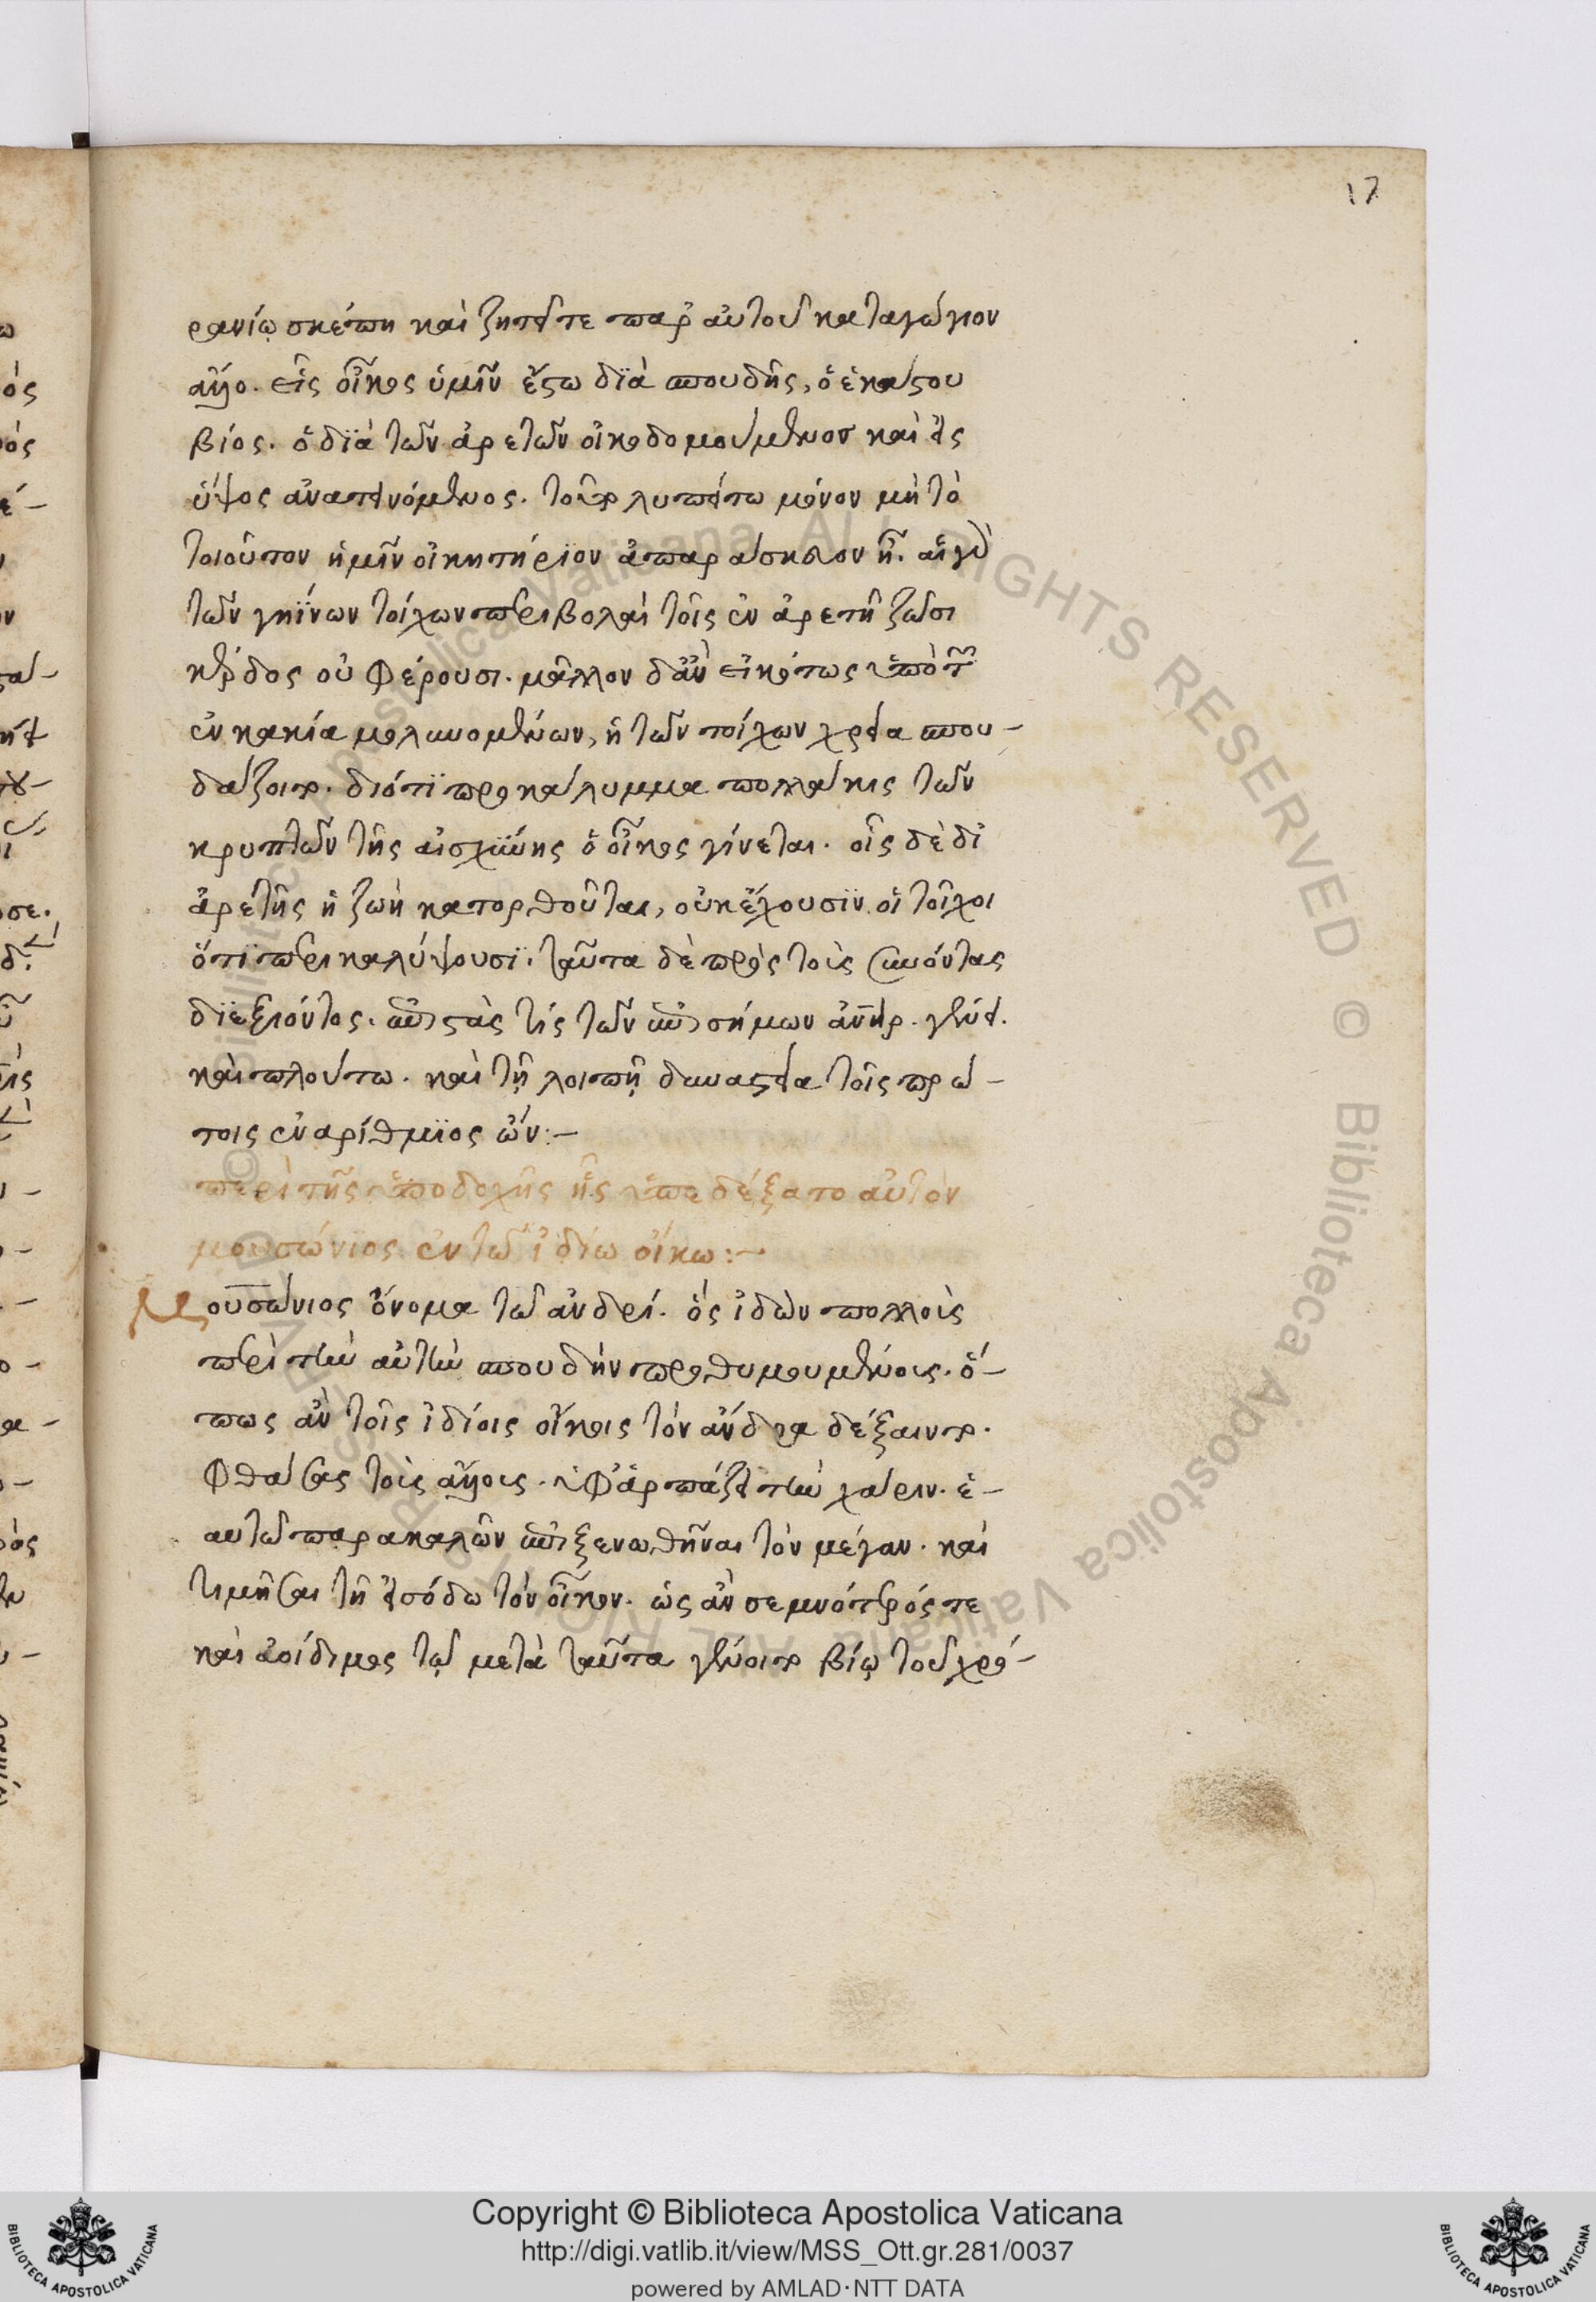 17
ρανίῳ σκέπη καὶ ζητεῖτε παρ' αὐτοῦ καταγώγιον
ἄλλο. εἷς οἶκος ὑμῖν ἔστω διὰ σπουδῆς, ὁ ἑκάστου
βίος. ὁ διὰ τῶν ἀρετῶν οἰκοδομούμενοσ καὶ εἰς
ὕψος ἀνατεινόμενος. τοῦτο λυπείτω μόνον μὴ τὸ
τοιοῦτον ἡμῖν οἰκητήριον ἀπαράσκευον ἦ. αἱ γὰρ
τῶν γηΐνων τοίχων περιβολαὶ τοῖς ἐν ἀρετῆ ζῶσι
κέρδος οὐ φέρουσι. μᾶλλον δ' ἂν εἰκότως ὑπὸ τῶν
ἐν κακία μολυνομένων, ἡ τῶν τοίχων χρεία σπου-
δάζοιτο. διότι προκάλυμμα πολλάκις τῶν
κρυπτῶν τῆς αἰσχύνης ὁ οἶκος γίνεται. οἷς δὲ δι'
ἀρετῆς ἡ ζωὴ κατορθοῦται, οὐκ ἔχουσιν οἱ τοῖχοι
ὅτι περικαλύψουσι. ταῦτα δὲ πρὸς τοὺς συνόντας
διεξιόντος. ἐπιστὰς τίς τῶν ἐπισήμων ἀνὴρ. γένει.
καὶ πλούτω. καὶ τῇ λοιπῇ δυναστεία τοῖς πρώ-
τοις ἐναρίθμιος ὤν:-
περὶ τῆς ὑποδοχῆς ἧς ὑπεδέξατο αὐτὸν
μουσώνιος ἐν τῶ ἰδίω οἴκω:-
Μουσώνιος ὄνομα τῶ ἀνδρί. ὃς ἰδὼν πολλοὺς
περὶ τὴν αὐτὴν σπουδὴν προθυμουμένους. ὅ-
πως ἂν τοῖς ἰδίοις οἴκοις τὸν ἄνδρα δέξαιντο.
φθάσας τοὺς ἄλλους. ὑφαρπάζει τὴν χάριν. ἑ-
αυτῶ παρακαλῶν ἐπιξενωθῆναι τὸν μέγαν. καὶ
τιμῆσαι τῆ εἰσόδω τὸν οἶκον. ὡς ἂν σεμνότερός τε
καὶ ἀοίδιμος τῷ μετὰ ταῦτα γένοιτο βίῳ τοῦ χρό-
Copyright © Biblioteca Apostolica Vaticana
http://digi.vatlib.it/view/MSS_Ott.gr.281/0037
powered by AMLAD·NTT DATA